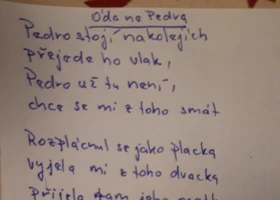 Óda na Pedra
Pedro stojí na kolejích
přejede ho vlak,
Pedro už tu není,
chce se mi z toho smát
Rozplácnul se jako placka
vyjela mi z toho dvacka
přijela tam jeho